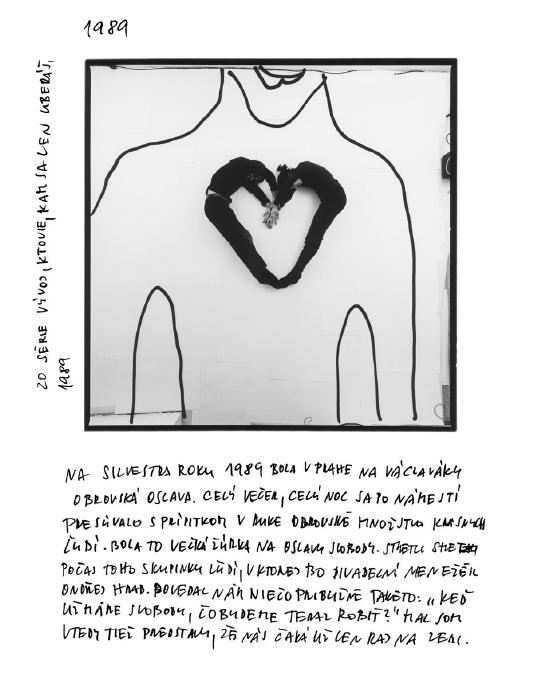 1989
ZO SÉRIE VÝVOJ, KTOVIE, KAM SA LEN UBERÁŠ,
1989
NA SILVESTRA ROKU 1989 BOLA V PRAHE NA VÁCLAVÁKU
OBROVSKÁ OSLAVA. CELÝ VEČER, CELÚ NOC SA PO NÁMESTÍ
PRESÚVALO S PRÍPITKOM V RUKE OBROVSKÉ MNOŽSTVO KRÁSNYCH
ĽUDÍ. BOLA TO VEĽKÁ ŽÚRKA NA OSLAVU SLOBODY. STRETLI SME TAM
POČAS TOHO SKUPINKU ĽUDÍ, V KTOREJ BOL DIVADELNÝ MENEŽÉR
ONDŘEJ HRAB. POVEDAL NÁM NIEČO PRIBLIŽNE TAKÉTO: „KEĎ
UŽ MÁME SLOBODU, ČO BUDEME TERAZ ROBIŤ?" MAL SOM
VTEDY TIEŽ PREDSTAVU, ŽE NÁS ČAKÁ UŽ LEN RAJ NA ZEMI.